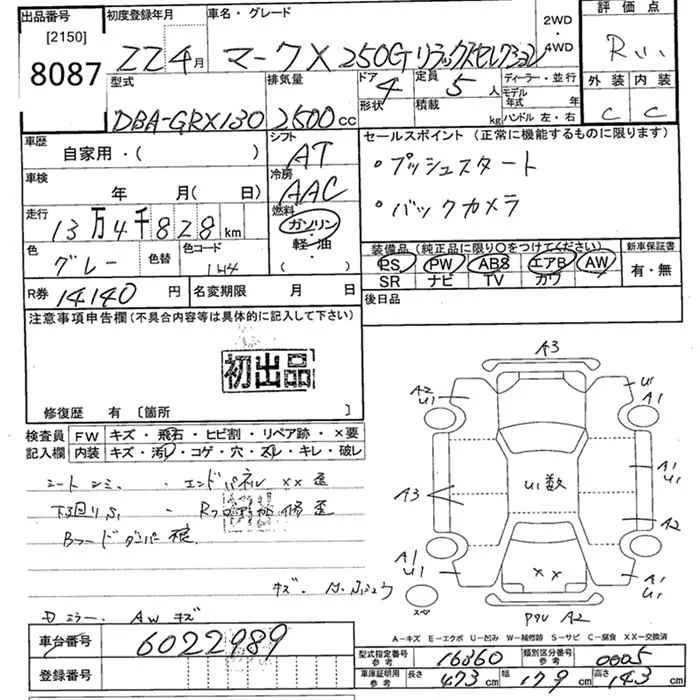 出品番号 初度登録年月 車名・グレード 2WD・4WD 評価点
[2150]
8087 22 4月 マークX 250G リラックスセレクション R
型式 排気量 ドア 4 定員 5人 ディーラー・並行 外装 内装
形状 積載 kg モデル年式 年 ハンドル 左・右 C C
DBA-GRX130 2500cc
車歴 シフト セールスポイント (正常に機能するものに限ります)
自家用・( ) AT
・プッシュスタート
車検 冷房
年 月( 日) AAC
・バックカメラ
走行 燃料
13万4千828km ガソリン・軽油・( )
色 色替 色コード 装備品 (純正品に限り○をつけてください) 新車保証書
グレー PS PW ABS エアB AW 有・無
SR ナビ TV カワ
R券 14140円 名変期限 月 日 後日品
注意事項申告欄(不具合内容等は具体的に記入して下さい)
初出品
修復歴 有 [箇所 ]
検査員 FW キズ・飛石・ヒビ割・リペア跡・×要
記入欄 内装 キズ・汚レ・コゲ・穴・スレ・キレ・破レ
エンドパネル XX 歪
Bフードダンパー
修歪
Dミラー AW キズ
A3
A2 U1
A1
A1 U1
A3
U1数
A2
A1 U1
A1 U1
XX
A2
A-キズ E-エクボ U-凹み W-補修跡 S-サビ C-腐食 XX-交換済
車台番号 6022989
登録番号
型式指定番号 参考 16860 類別区分番号 参考 0005
車庫証明用 参考 長さ 473cm 幅 179cm 高さ 143cm